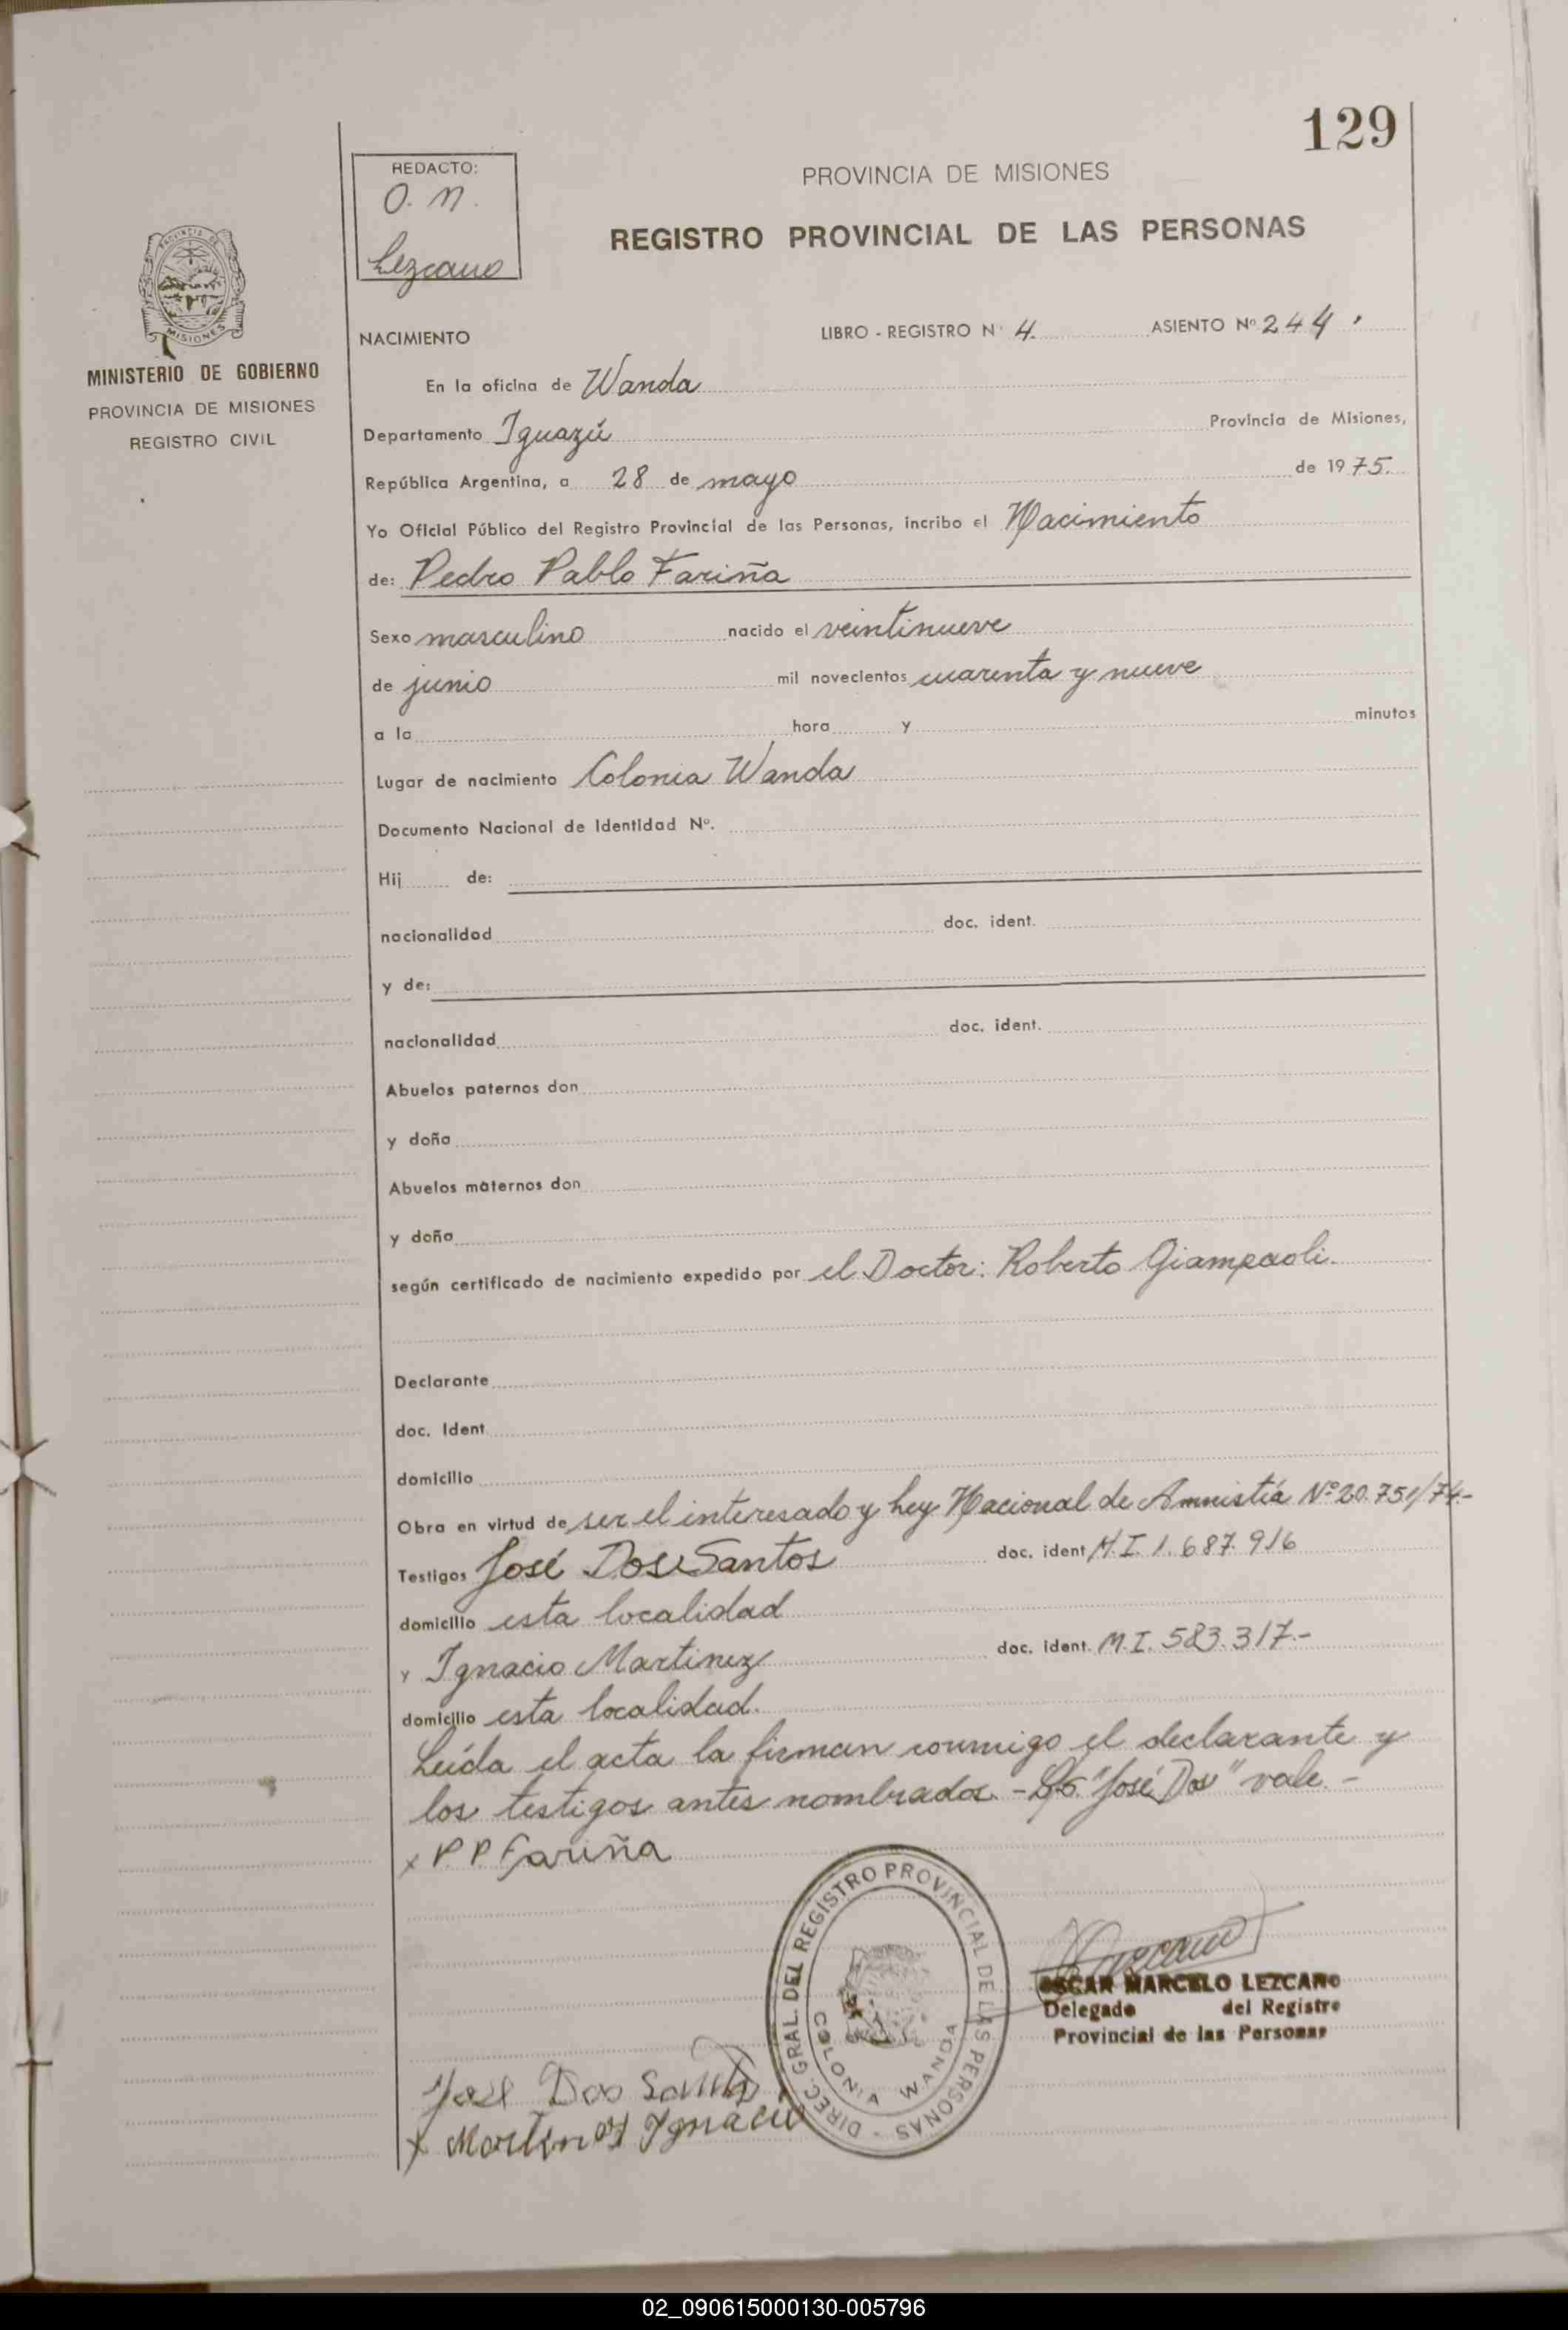 129
REDACTO:
O. M.
Lezcano
PROVINCIA DE MISIONES
REGISTRO PROVINCIAL DE LAS PERSONAS
PROVINCIA DE
MISIONES
MINISTERIO DE GOBIERNO
PROVINCIA DE MISIONES
REGISTRO CIVIL
NACIMIENTO LIBRO - REGISTRO Nº 4. ASIENTO Nº 244.
En la oficina de Wanda
Departamento Iguazú Provincia de Misiones,
República Argentina, a 28 de mayo de 1975.
Yo Oficial Público del Registro Provincial de las Personas, incribo el Nacimiento
de: Pedro Pablo Fariña
Sexo masculino nacido el veintinueve
de junio mil novecientos cuarenta y nueve
a la hora y minutos
Lugar de nacimiento Colonia Wanda
Documento Nacional de Identidad Nº.
Hij de:
nacionalidad doc. ident.
y de:
nacionalidad doc. ident.
Abuelos paternos don
y doña
Abuelos maternos don
y doña
según certificado de nacimiento expedido por el Doctor: Roberto Giampaoli.
Declarante
doc. Ident
domicilio
Obra en virtud de ser el interesado y Ley Nacional de Amnistía Nº 20.751/74.-
Testigos José Dos Santos doc. ident M.I. 1.687.916
domicilio esta localidad
y Ignacio Martinez doc. ident. M.I. 583.317.-
domicilio esta localidad.
Leída el acta la firman conmigo el declarante y
los testigos antes nombrados. - "José Dos" vale -
x P. P Fariña
DIREC. GRAL. DEL REGISTRO PROVINCIAL DE LAS PERSONAS -
COLONIA WANDA
Lezcano
OSCAR MARCELO LEZCANO
Delegado del Registro
Provincial de las Personas
José Dos Santos
x Martinez Ignacio
02_090615000130-005796